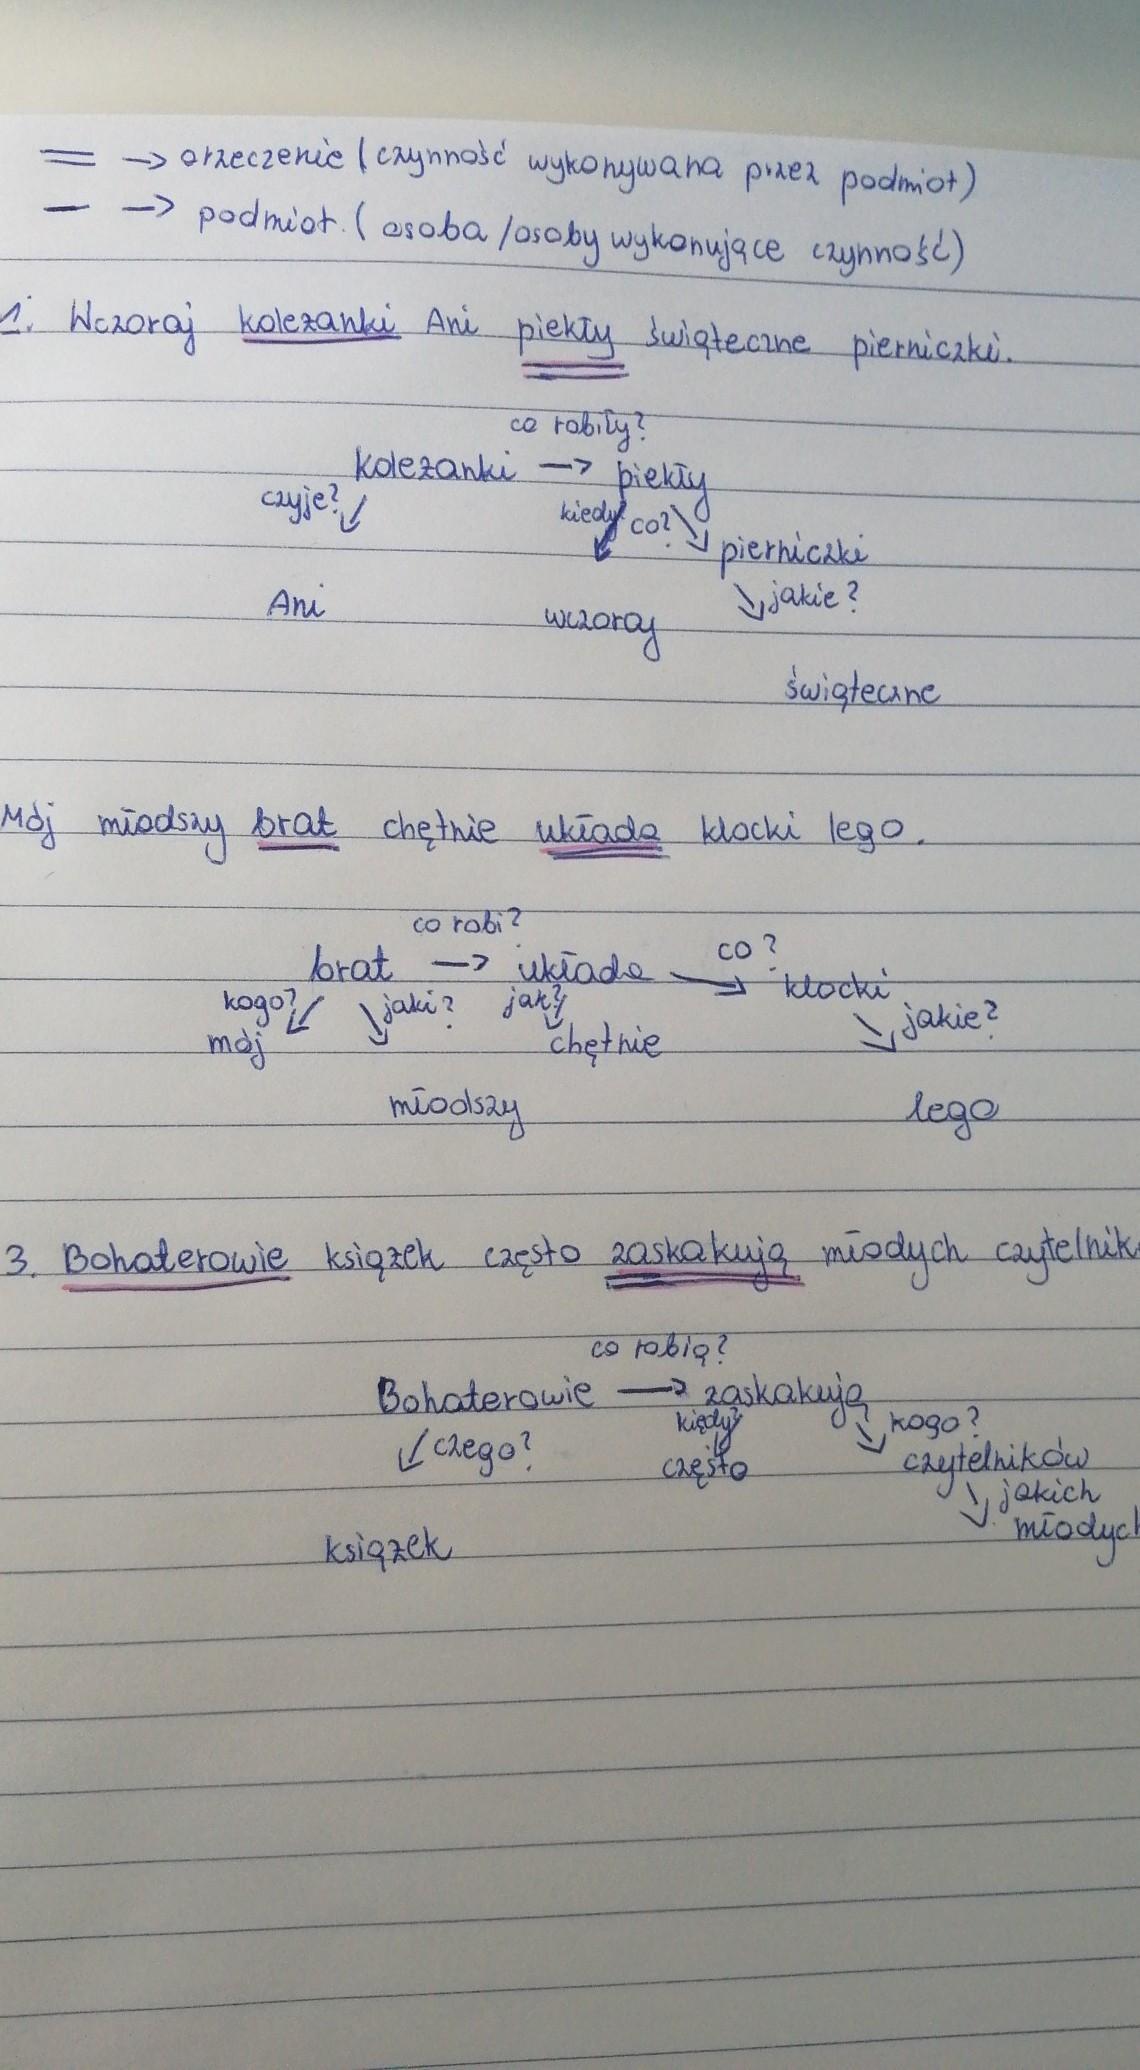 = → orzeczenie (czynność wykonywana przez podmiot)
— → podmiot. (osoba /osoby wykonujące czynność)
1. Wczoraj koleżanki Ani piekły świąteczne pierniczki.
co robiły?
koleżanki → piekły
czyje? kiedy? co? pierniczki
Ani wczoraj jakie?
świąteczne
Mój młodszy brat chętnie układa klocki lego.
co robi? co?
brat → układa → klocki
kogo? jaki? jak? jakie?
mój chętnie
młodszy lego
3. Bohaterowie książek często zaskakują młodych czytelnik
co robią?
Bohaterowie → zaskakują
kiedy? kogo?
czego? często czytelników
jakich
książek młodych